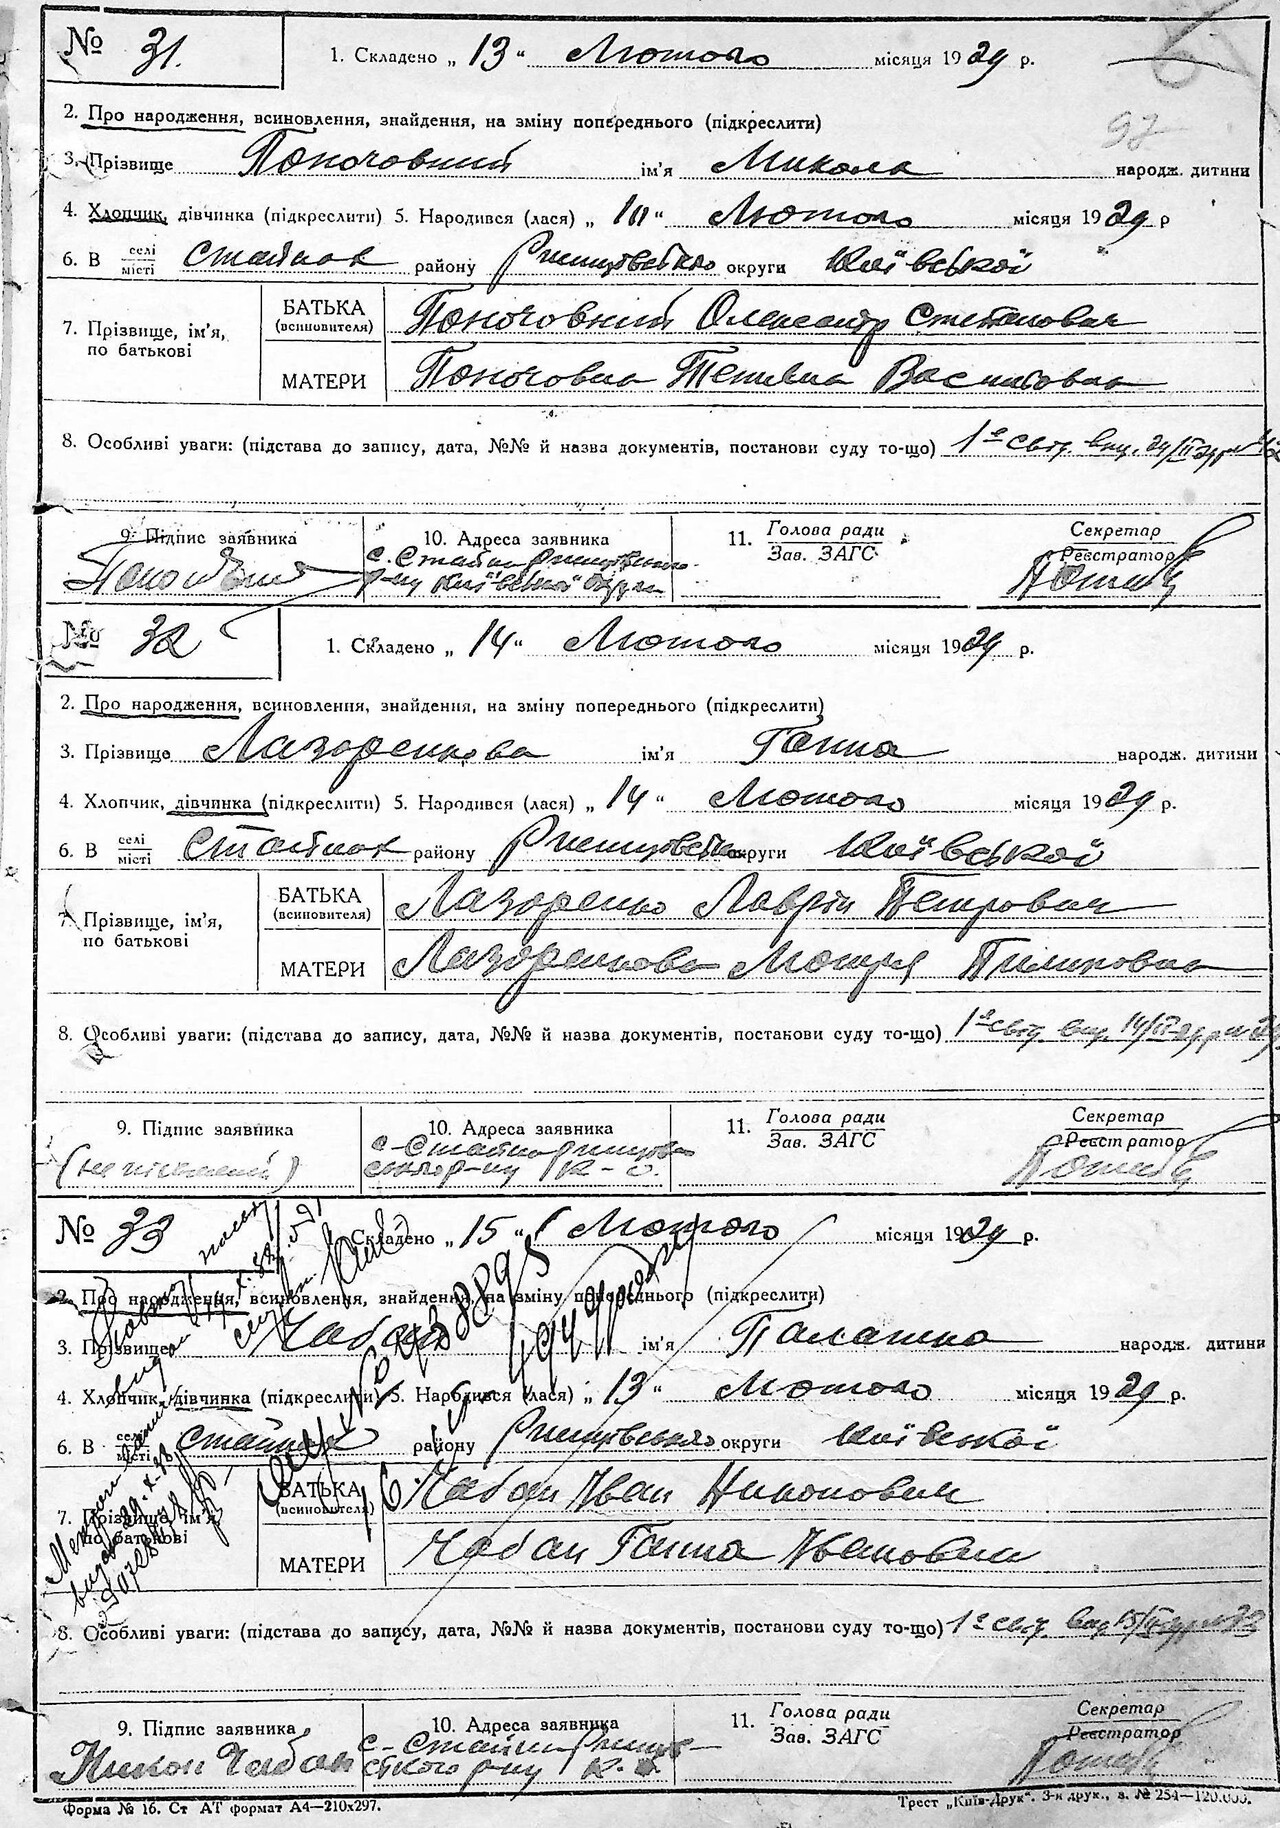 № 31. 1. Складено „ 13 “ Лютого місяця 1929 р.
97
2. Про народження, всиновлення, знайдення, на зміну попереднього (підкреслити)
3. Прізвище Поночовний ім'я Микола народж. дитини
4. Хлопчик, дівчинка (підкреслити) 5. Народився (лася) „ “ Лютого місяця 1929 р
6. В селі/місті Стайках району Ржищівського округи Київської
7. Прізвище, ім'я, по батькові
БАТЬКА (всиновителя) Поночовний Олександр Степанович
МАТЕРИ Поночовна Тетяна
8. Особливі уваги: (підстава до запису, дата, №№ й назва документів, постанови суду то-що) 1е свід. вид.
9. Підпис заявника 10. Адреса заявника 11. Голова ради Секретар
Зав. ЗАГС Реєстратор
с. Стайки Ржищівського
р-ну Київської округи
№ 32 1. Складено „ 14 “ Лютого місяця 1929 р.
2. Про народження, всиновлення, знайдення, на зміну попереднього (підкреслити)
3. Прізвище Лазоренкова ім'я Ганна народж. дитини
4. Хлопчик, дівчинка (підкреслити) 5. Народився (лася) „ 14 “ Лютого місяця 1929 р.
6. В селі/місті Стайках району Ржищівськ округи Київської
7. Прізвище, ім'я, по батькові
БАТЬКА (всиновителя) Лазоренко Лаврін Петрович
МАТЕРИ Лазоренкова Мотря Пилиповна
8. Особливі уваги: (підстава до запису, дата, №№ й назва документів, постанови суду то-що) 1е свід. вид. 14/II-29 р
9. Підпис заявника 10. Адреса заявника 11. Голова ради Секретар
Зав. ЗАГС Реєстратор
(не письмений) с-Стайки Ржищів
ського р-ну К-о.
№ 33 1. Складено „ 15 “ Лютого місяця 1929 р.
2. Про народження, всиновлення, знайдення, на зміну попереднього (підкреслити)
3. Прізвище Чабан ім'я Палашка народж. дитини
4. Хлопчик, дівчинка (підкреслити) 5. Народився (лася) „ 13 “ Лютого місяця 1929 р.
6. В селі/місті Стайках району Ржищівського округи Київської
7. Прізвище, ім'я, по батькові
БАТЬКА (всиновителя) Чабан Іван Никонович
МАТЕРИ Чабан Ганна Івановна
8. Особливі уваги: (підстава до запису, дата, №№ й назва документів, постанови суду то-що) 1е свід. вид. 15/II
9. Підпис заявника 10. Адреса заявника 11. Голова ради Секретар
Зав. ЗАГС Реєстратор
Никон Чабан с-Стайки Ржищів-
ського р-ну К.
Форма № 16. Ст АТ формат А4—210х297. Трест „Київ-Друк“. 3-я друк., з. № 254—120.000.